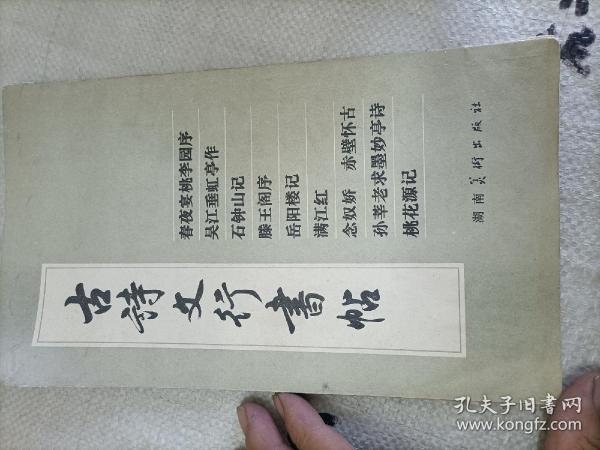 古诗文行書帖
春夜宴桃李园序
吴江垂虹亭作
石钟山记
滕王阁序
岳阳楼记
满江红
念奴娇 赤壁怀古
孙莘老求墨妙亭诗
桃花源记
湖南美术出版社
孔夫子旧书网
www.kongfz.com